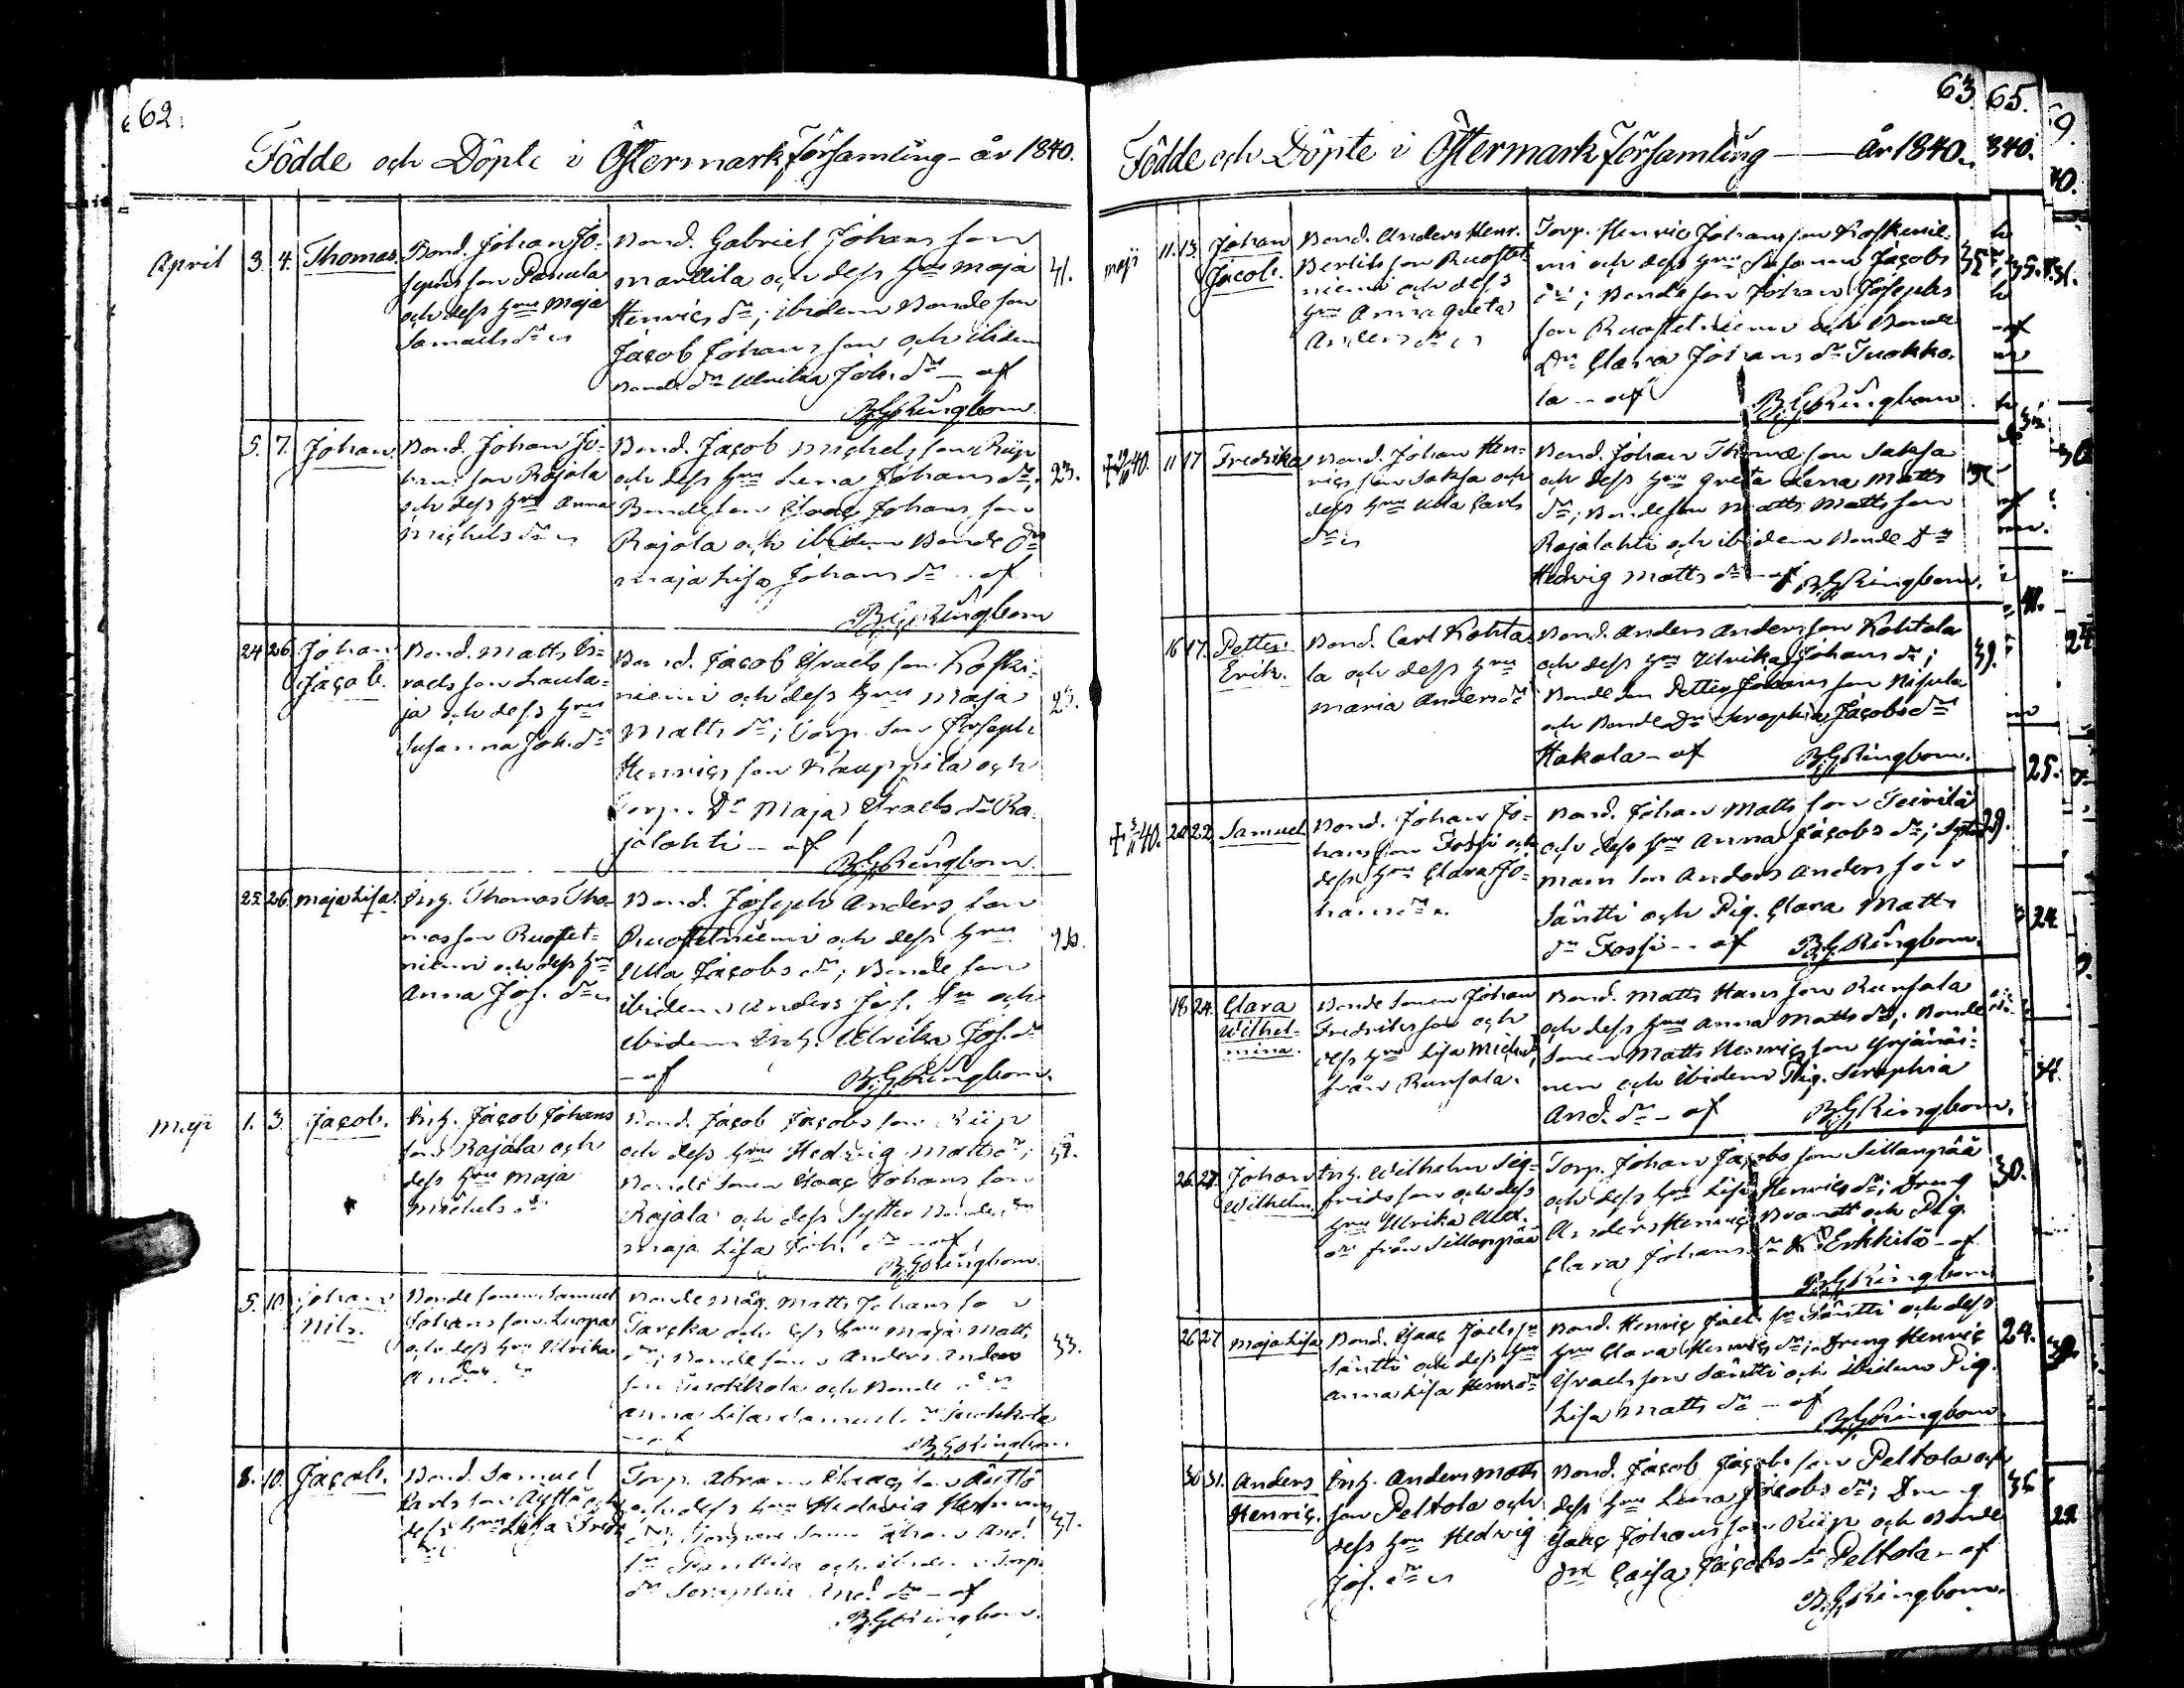 62.
Födde och Döpte i Östermark Församling - år 1840.
April 3. 4. Thomas. Bond. Johan Jo-
sephs son Panula
och dess Hru Maja
Samuels dr
Bond. Gabriel Johans son
Marttila och dess Hru Maja
Henrics dr; ibidem Bonde son
Jacob Johans son och ibidem
Bonde dr Ulrika Joh. dr - af
B.G. Ringbom.
41.
5. 7. Johan. Bond. Johan Jo-
hans son Rajala
och dess Hru Anna
Michels dr
Bond. Jacob Michels son Riip
och dess Hru Lena Johans dr;
Bonde son Isaac Johans son
Rajala och ibidem Bonde dr
Maja Lisa Johans dr - af
B.G. Ringbom
23.
24. 26. Johan
Jacob.
Bond. Matts Is-
raels son Laula-
ja och dess Hru
Susanna Joh. dr
Bond. Jacob Israels son Koski-
niemi och dess Hru Maja
Matts dr; Torp. son Joseph
Henrics son Kauppila och
Torp. dr Maja Israels dr Ra-
jalahti - af
B.G. Ringbom.
25. 26. Maja Lisa. Inh. Thomas Tho-
mas son Ruofet-
niemi och dess Hru
Anna Jos. dr
Bond. Joseph Anders son
Ruostetniemi och dess Hru
Ulla Jacobs dr; Bonde son
ibidem Anders Jos. sn och
ibidem Inh. Ulrika Jos. dr
- af
B.G. Ringbom.
Maji 1. 3. Jacob. Inh. Jacob Johans
son Rajala och
dess Hru Maja
Michels dr
Bond. Jacob Jacobs son Riip
och dess Hru Hedvig Matts dr;
Bonde sonen Isaac Johans son
Rajala och dess Syster Bonde dr
Maja Lisa Joh. dr - af
B.G. Ringbom.
5. 10. Johan
Nils.
Bonde sonen Samuel
Johans son Luopa
och dess Hru Ulrika
And. dr
Bonde måg. Matts Johans son
och dess Hru Maja Matts
dr; Bonde son Anders Anders
son Tuokkola och Bonde dr
Anna Lisa Samuels dr Tuokkola
- af
B.G. Ringbom.
33.
8. 10. Jacob. Bond. Samuel
och
dess Hru Lisa Fred.
Torp. Abram Isaacs son
och dess Hru Hedvig Hermans
dr; Johan And.
sn och ibidem Torp.
dr Serephia And. dr - af
B.G. Ringbom.
37.
63. 65.
Födde och Döpte i Östermark Församling - år 1840. 840.
Maji 11. 13. Johan
Jacob.
Bond. Anders Henr.
Bertils son Ruostet-
niemi och dess
Hru Anna Greta
Anders dr
Torp. Henric Johans son Koskenie-
mi och dess Hru Susanna Jacobs
dr; Bonde son Johan Josephs
son Ruostetniemi och Bonde
dr Clara Johans dr Tuokko-
la - af
B.G. Ringbom.
35.
11. 17. Fredrika. Bond. Johan Hen-
rics son Saksa och
dess Hru Ulla Carls
dr
Bond. Johan Thomæ son Saksa
och dess Hru Greta Lena Matts
dr; Bonde son Matts Matts son
Rajalahti och ibidem Bonde dr
Hedvig Matts dr - af B.G. Ringbom.
16. 17. Petter
Erik.
Bond. Carl Kohta-
la och dess Hru
Maria Anders dr
Bond. Anders Anders son Kohtala
och dess Hru Ulrika Johans dr;
Bonde son Petter Johans son Nisula
och Bonde dr Serephia Jacobs dr
Hakola - af B.G. Ringbom.
39.
22. 22. Samuel Bond. Johan Jo-
hans son Fossi och
dess Hru Clara Jo-
hans dr
Bond. Johan Matts son Teirilä
och dess Hru Anna Jacobs dr;
man son Anders Anders son
Säntti och Pig. Clara Matts
dr Fossi - af B.G. Ringbom.
29.
18. 24. Clara
Wilhel-
mina.
Bonde sonen Johan
Fredriks son och
dess Hru Lisa Michels
från Runsala.
Bond. Matts Hans son Runsala
och dess Hru Anna Matts dr; Bonde
sonen Matts Henrics son Yrjänäi-
nen och ibidem Pig. Serephia
And. dr - af B.G. Ringbom.
26. 27. Johan
Wilhelm.
Inh. Wilhelm Sig-
frids son och dess
Hru Ulrika Alex.
dr från Sillanpää
Torp. Johan Jacobs son Sillanpää
och dess Hru Lisa Henrics dr; Dreng
Anders Henrics Brandt och Pig.
Clara Johans dr Erkkilä - af
B.G. Ringbom
30.
26. 27. Maja Lisa Bond. Isaac Joels sn
Säntti och dess Hru
Anna Lisa Henr. dr
Bond. Henric Joels sn Säntti och dess
Hru Clara Henrics dr; Dreng Henric
Israels son Säntti och ibidem Pig.
Lisa Matts dr - af
B.G. Ringbom
24.
30. 31. Anders
Henric.
Inh. Anders Matts
son Peltola och
dess Hru Hedvig
Jos. dr
Bond. Jacob Jacobs son Peltola och
dess Hru Lena Jacobs dr; Dreng
Isaac Johans son Riip och Bonde
dr Caisa Jacobs dr Peltola - af
B.G. Ringbom.
36